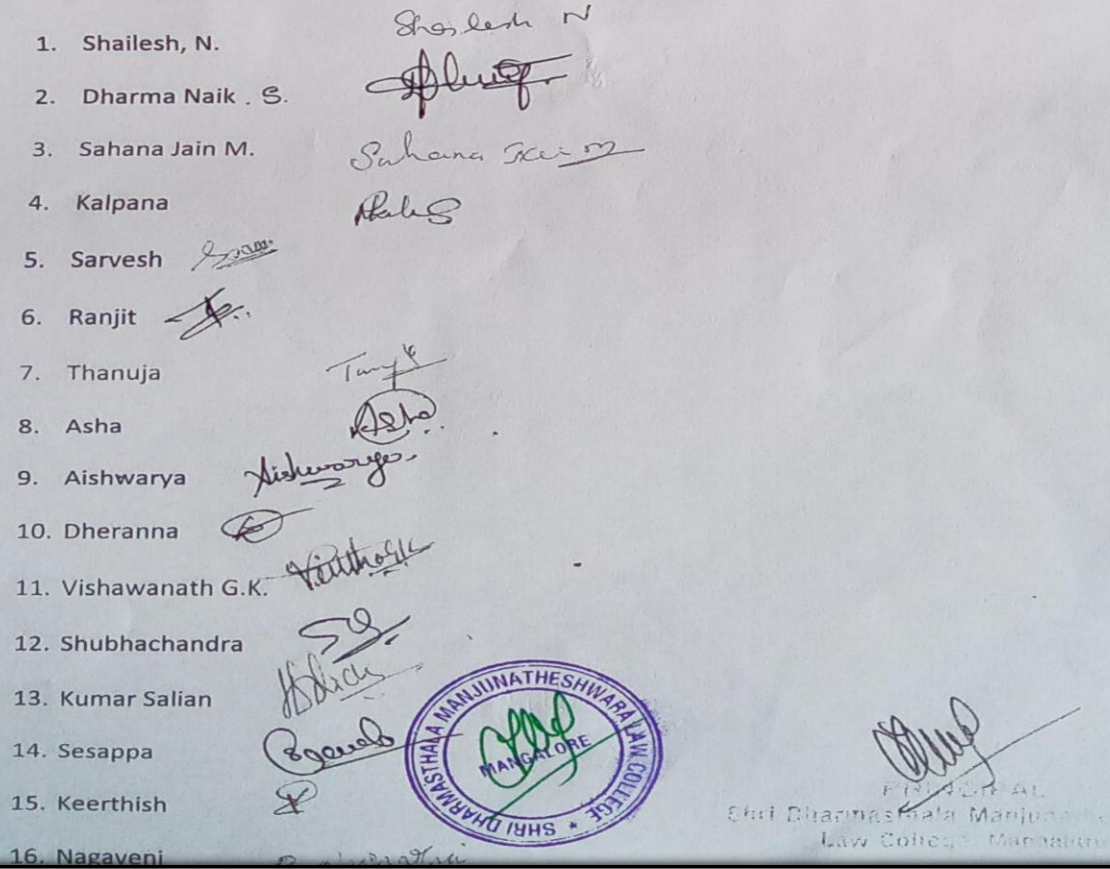 1. Shailesh, N. Shailesh N
2. Dharma Naik . S.
3. Sahana Jain M. Sahana Jain M
4. Kalpana
5. Sarvesh
6. Ranjit
7. Thanuja
8. Asha Asha
9. Aishwarya Aishwarya
10. Dheranna
11. Vishawanath G.K.
12. Shubhachandra
13. Kumar Salian
14. Sesappa
15. Keerthish
16. Nagaveni
SHRI DHARMASTHALA MANJUNATHESHWARA LAW COLLEGE *
MANGALORE
PRINCIPAL
Shri Dharmasthala
Law College